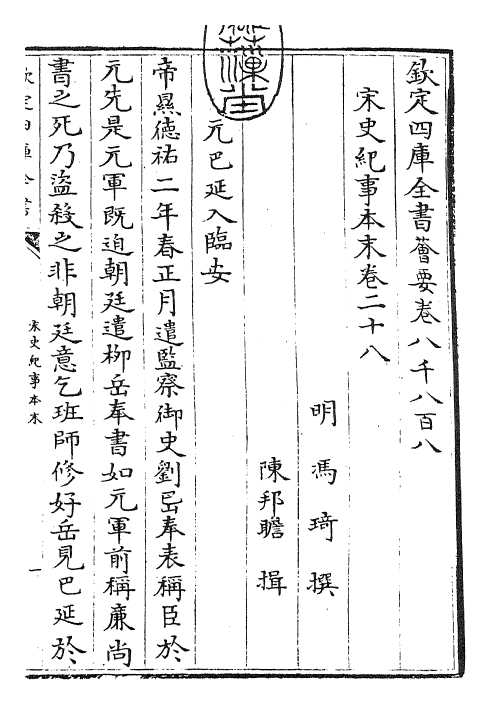 欽定四庫全書薈要卷八千八百八
宋史紀事本末卷二十八
明 馮琦 撰
陳邦瞻 揖
元巴延入臨安
帝㬎德祐二年春正月遣監察御史劉岊奉表稱臣於
元先是元軍既迫朝廷遣栁岳奉書如元軍前稱廉尚
書之死乃盗殺之非朝廷意乞班師修好岳見巴延於
欽定四庫全書
宋史紀事本末
一